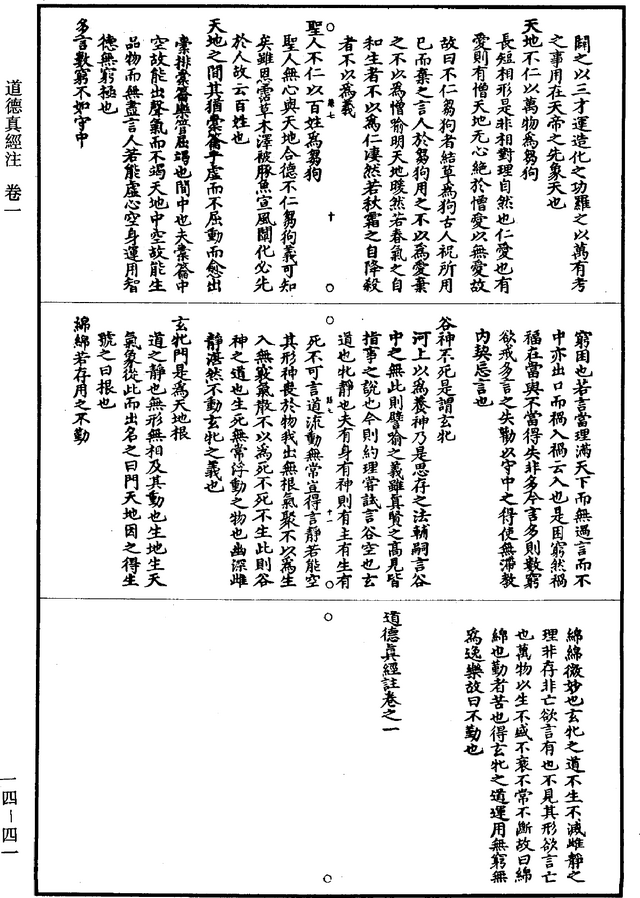 闢之以三才運造化之功羅之以萬有考
之事用在天帝之先象天也
天地不仁以萬物爲芻狗
長短相形是非相對理自然也仁愛也有
愛則有憎天地无心絕於憎愛以無愛故
故曰不仁芻狗者結草爲狗古人祝所用
已而棄之言人於芻狗用之不以爲愛棄
之不以爲憎喻明天地暖然若春氣之自
和生者不以爲仁淒然若秋霜之自降殺
者不以爲義
聖人不仁以百姓爲芻狗
聖人無心與天地合德不仁芻狗義可知
矣雖恩霑草木澤被豚魚宣風闡化必先
於人故云百姓也
天地之間其猶橐籥乎虛而不屈動而愈出
橐排橐籥樂管屈竭也間中也夫橐籥中
空故能出聲氣而不竭天地中空故能生
品物而無盡言人若能虛心空身運用智
德無窮極也
多言數窮不如守中
窮困也若言當理滿天下而無過言而不
中亦出口而禍入禍云入也是困窮然禍
福在當與不當得失非多今言多則數窮
欲戒多言之失勸以守中之得使無滯教
內契忘言也
谷神不死是謂玄牝
河上以爲養神乃是思存之法輔嗣言谷
中之無此則譬喻之義雖真賢之高見皆
指事之說也今則約理嘗試言谷空也玄
道也牝靜也夫有身有神則有主有生有
死不可言道流動無常豈得言靜若能空
其形神喪於物我出無根氣聚不以爲生
入無竅氣散不以爲死不死不生此則谷
神之道也生死無常浮動之物也幽深雌
靜湛然不動玄牝之義也
玄牝門是爲天地根
道之靜也無形無相及其動也生地生天
氣象從此而出名之曰門天地因之得生
號之曰根也
綿綿若存用之不勤
綿綿微妙也玄牝之道不生不滅雌靜之
理非存非亡欲言有也不見其形欲言亡
也萬物以生不盛不衰不常不斷故曰綿
綿也勤者苦也得玄牝之道運用無窮無
爲逸樂故曰不勤也
道德真經註卷之一
道德真經注 卷一
一四—四一